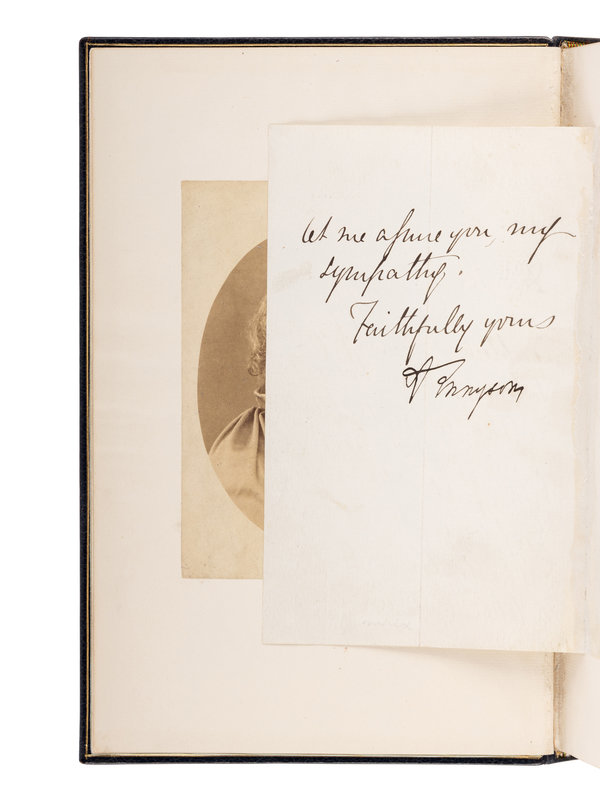 let me assure you, my
sympathy.
Faithfully yours
A Tennyson